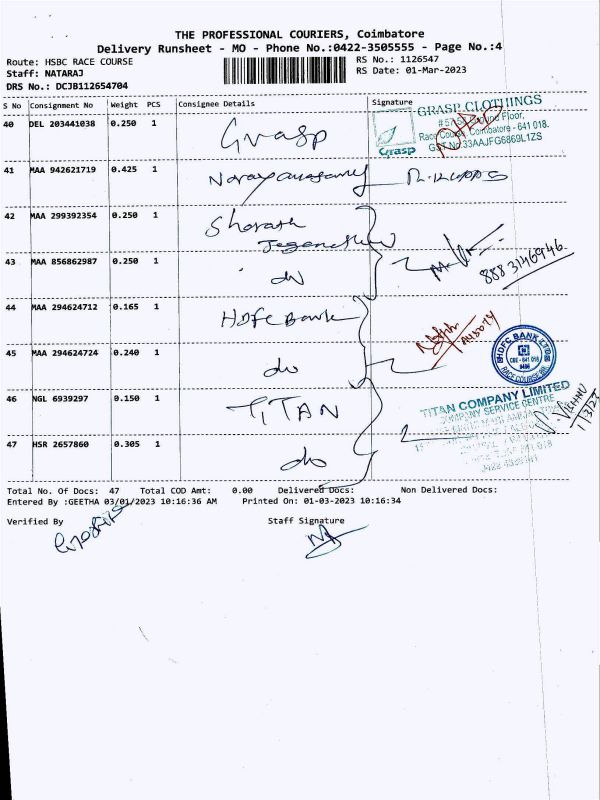 THE PROFESSIONAL COURIERS, Coimbatore
Delivery Runsheet - MO - Phone No.:0422-3505555 - Page No.:4
Route: HSBC RACE COURSE
RS No.: 1126547
Staff: NATARAJ
RS Date: 01-Mar-2023
DRS No.: DCJB112654704
S No Consignment No Weight PCS Consignee Details Signature
40 DEL 203441038 0.250 1 Grasp
GRASP CLOTHINGS
Floor,
Race Course, Coimbatore - 641 018.
GST No 33AAJFG6869L1ZS
Grasp
41 MAA 942621719 0.425 1
42 MAA 299392354 0.250 1 Sharath
43 MAA 856862987 0.250 1 do
888 3146946
44 MAA 294624712 0.165 1 HDFC Bank
45 MAA 294624724 0.240 1 do
HDFC BANK LTD
CBE - 641 018
RACE COURSE
46 NGL 6939297 0.150 1 TITAN
TITAN COMPANY LIMITED
COMPANY SERVICE CENTRE
VISHNU
1/3/23
47 HSR 2657860 0.305 1 do
Total No. Of Docs: 47 Total COD Amt: 0.00 Delivered Docs: Non Delivered Docs:
Entered By :GEETHA 03/01/2023 10:16:36 AM Printed On: 01-03-2023 10:16:34
Verified By Staff Signature